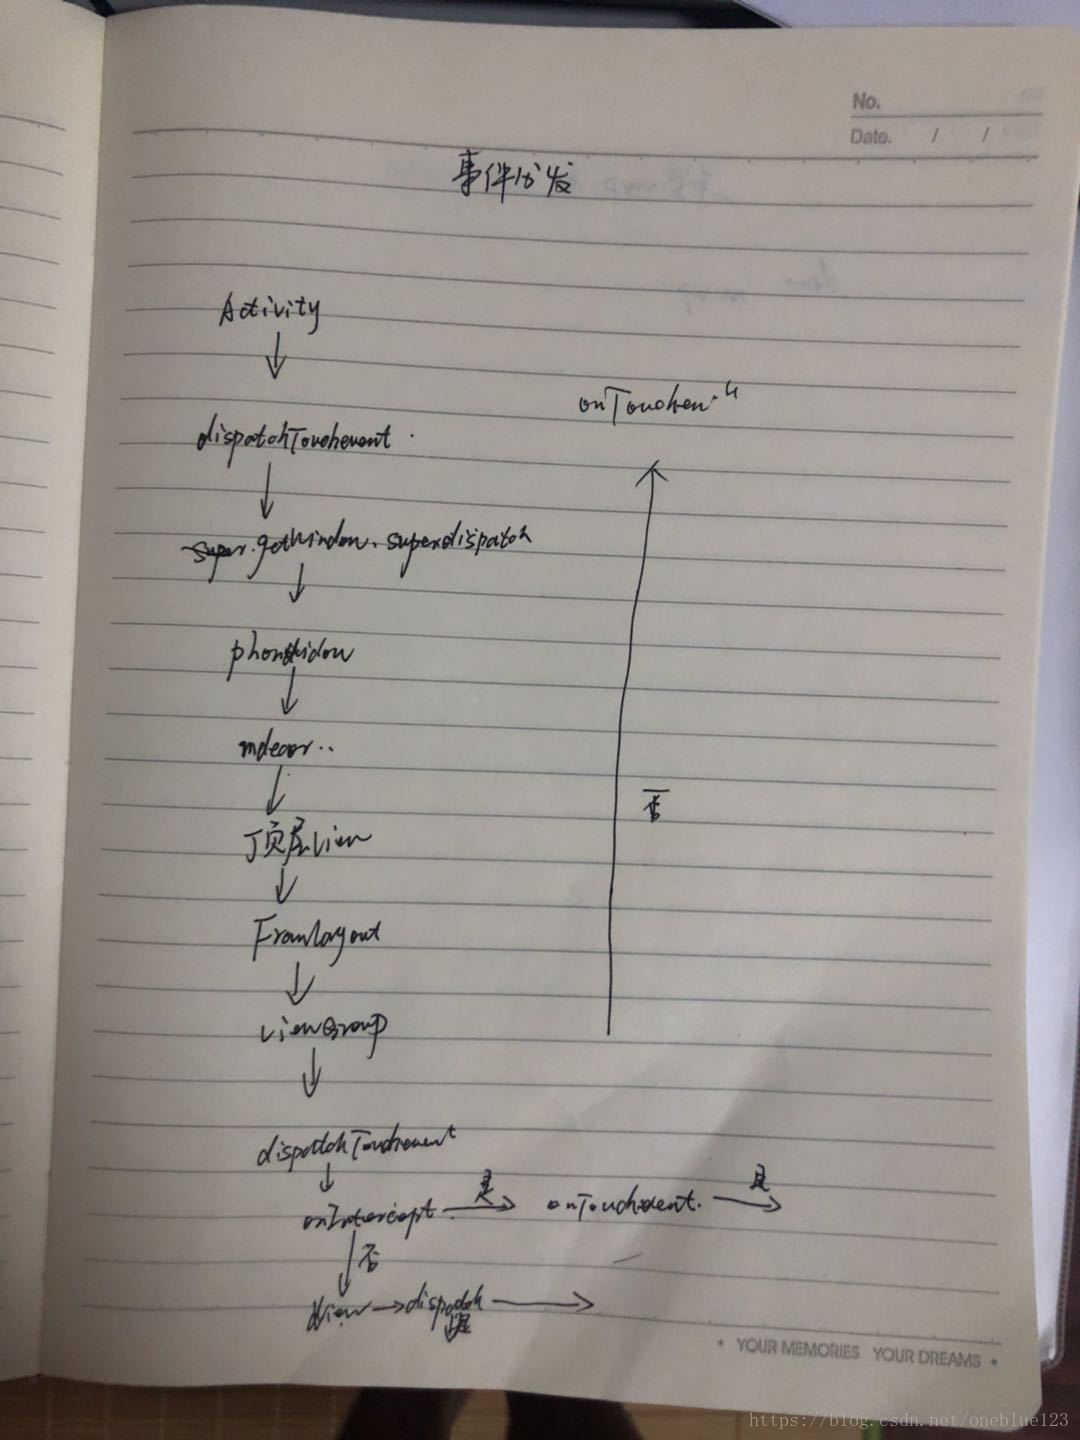 No.
Date. / /
事件分发
Activity
onTouchen..
dispatchTouchevent.
super.getWindow.superdispatch
phonewidow
mdecor..
否
顶层View
Framlayout
viewGroup
dispatchTouchevent
onIntercept 是 onTouchevent. 是
否
View dispatch
YOUR MEMORIES YOUR DREAMS
https://blog.csdn.net/oneblue123